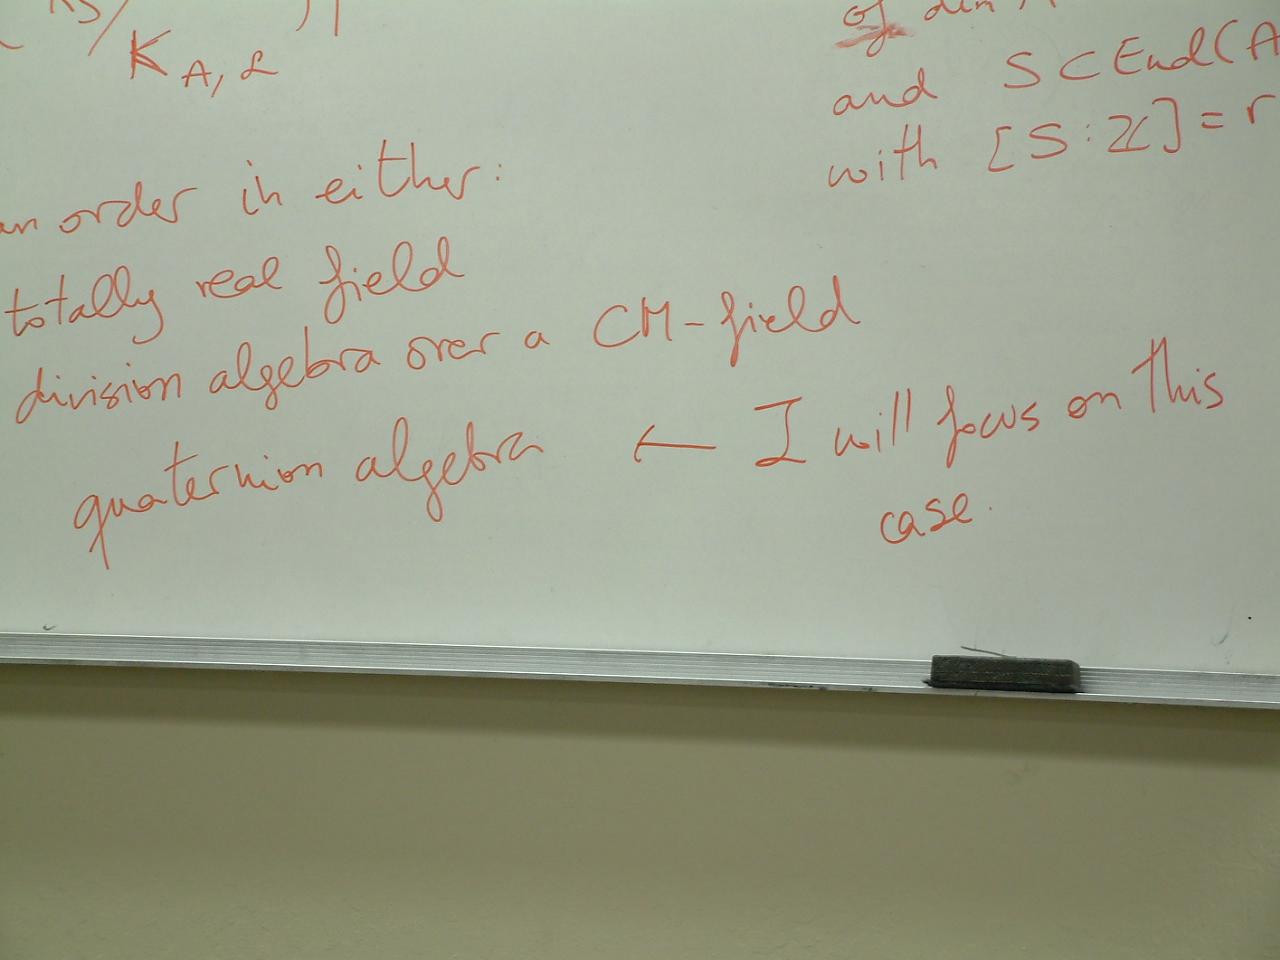 K A, L
and S ⊂ End(A
with [S:ℤ] = r
an order in either:
totally real field
division algebra over a CM-field
quaternion algebra ← I will focus on this
case.